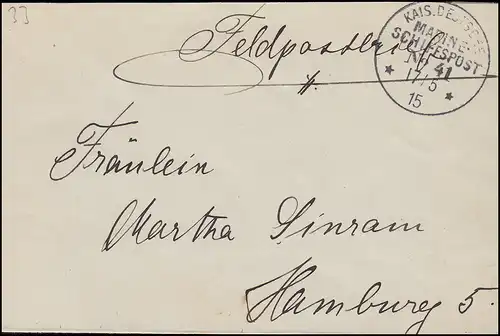 33
Feldpostbrief
KAIS. DEUTSCHE
MARINE-
SCHIFFSPOST
No 41
17/5
15
Fräulein
Martha Sinram
Hamburg 5.